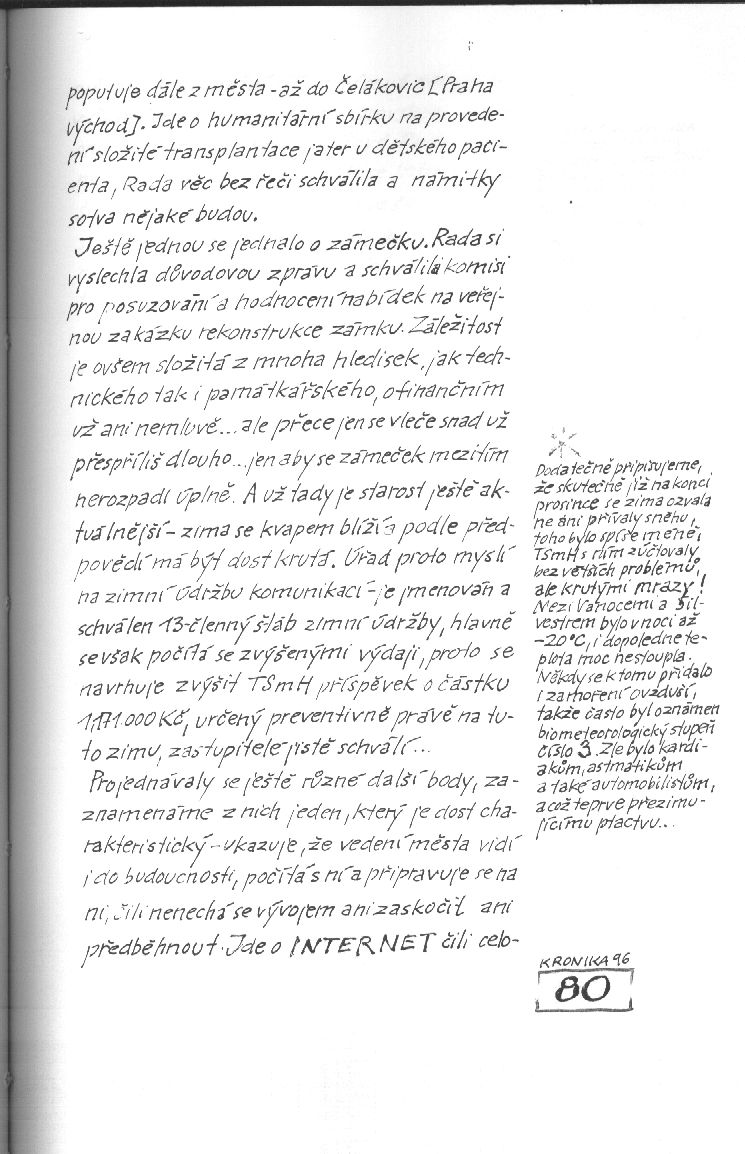 poputuje dále z města - až do Čelákovic [Praha
východ]. Jde o humanitární sbírku na provede-
ní složité transplantace jater u dětského paci-
enta, Rada věc bez řečí schválila a námitky
sotva nějaké budou.
Ještě jednou se jednalo o zámečku. Rada si
vyslechla důvodovou zprávu a schválila komisi
pro posuzování a hodnocení nabídek na veřej-
nou zakázku rekonstrukce zámku. Záležitost
je ovšem složitá z mnoha hledisek, jak tech-
nického tak i památkářského, o finančním
už ani nemluvě... ale přece jen se vleče snad už
přespříliš dlouho... jen aby se zámeček mezitím
nerozpadl úplně. A už tady je starost ještě ak-
tuálnější - zima se kvapem blíží a podle před-
povědí má být dost krutá. Úřad proto myslí
na zimní údržbu komunikací - je jmenován a
schválen 13-členný štáb zimní údržby, hlavně
se však počítá se zvýšenými výdaji, proto se
navrhuje zvýšit TSmH příspěvek o částku
1,171.000 Kč, určený preventivně právě na tu-
to zimu, zastupitelé jistě schválí...
Projednávaly se ještě různé další body, za-
znamenáme z nich jeden, který je dost cha-
rakteristický - ukazuje, že vedení města vidí
i do budoucnosti, počítá s ní a připravuje se na
ni, čili nenechá se vývojem ani zaskočit ani
předběhnout. Jde o INTERNET čili celo-
Dodatečně připisujeme,
že skutečně již na konci
prosince se zima ozvala
ne ani přívaly sněhu,
toho bylo spíše méně,
TSmH s ním zúčtovaly
bez větších problémů,
ale krutými mrazy!
Mezi Vánocemi a Sil-
vestrem bylo v noci až
-20°C, i dopoledne te-
plota moc nestoupla.
Někdy se k tomu přidalo
i zamoření ovzduší,
takže často byl oznámen
biometeorologický stupeň
číslo 3. Zle bylo kardi-
akům, astmatikům
a také automobilistům,
a což teprve přezimu-
jícímu ptactvu...
KRONIKA 96
80